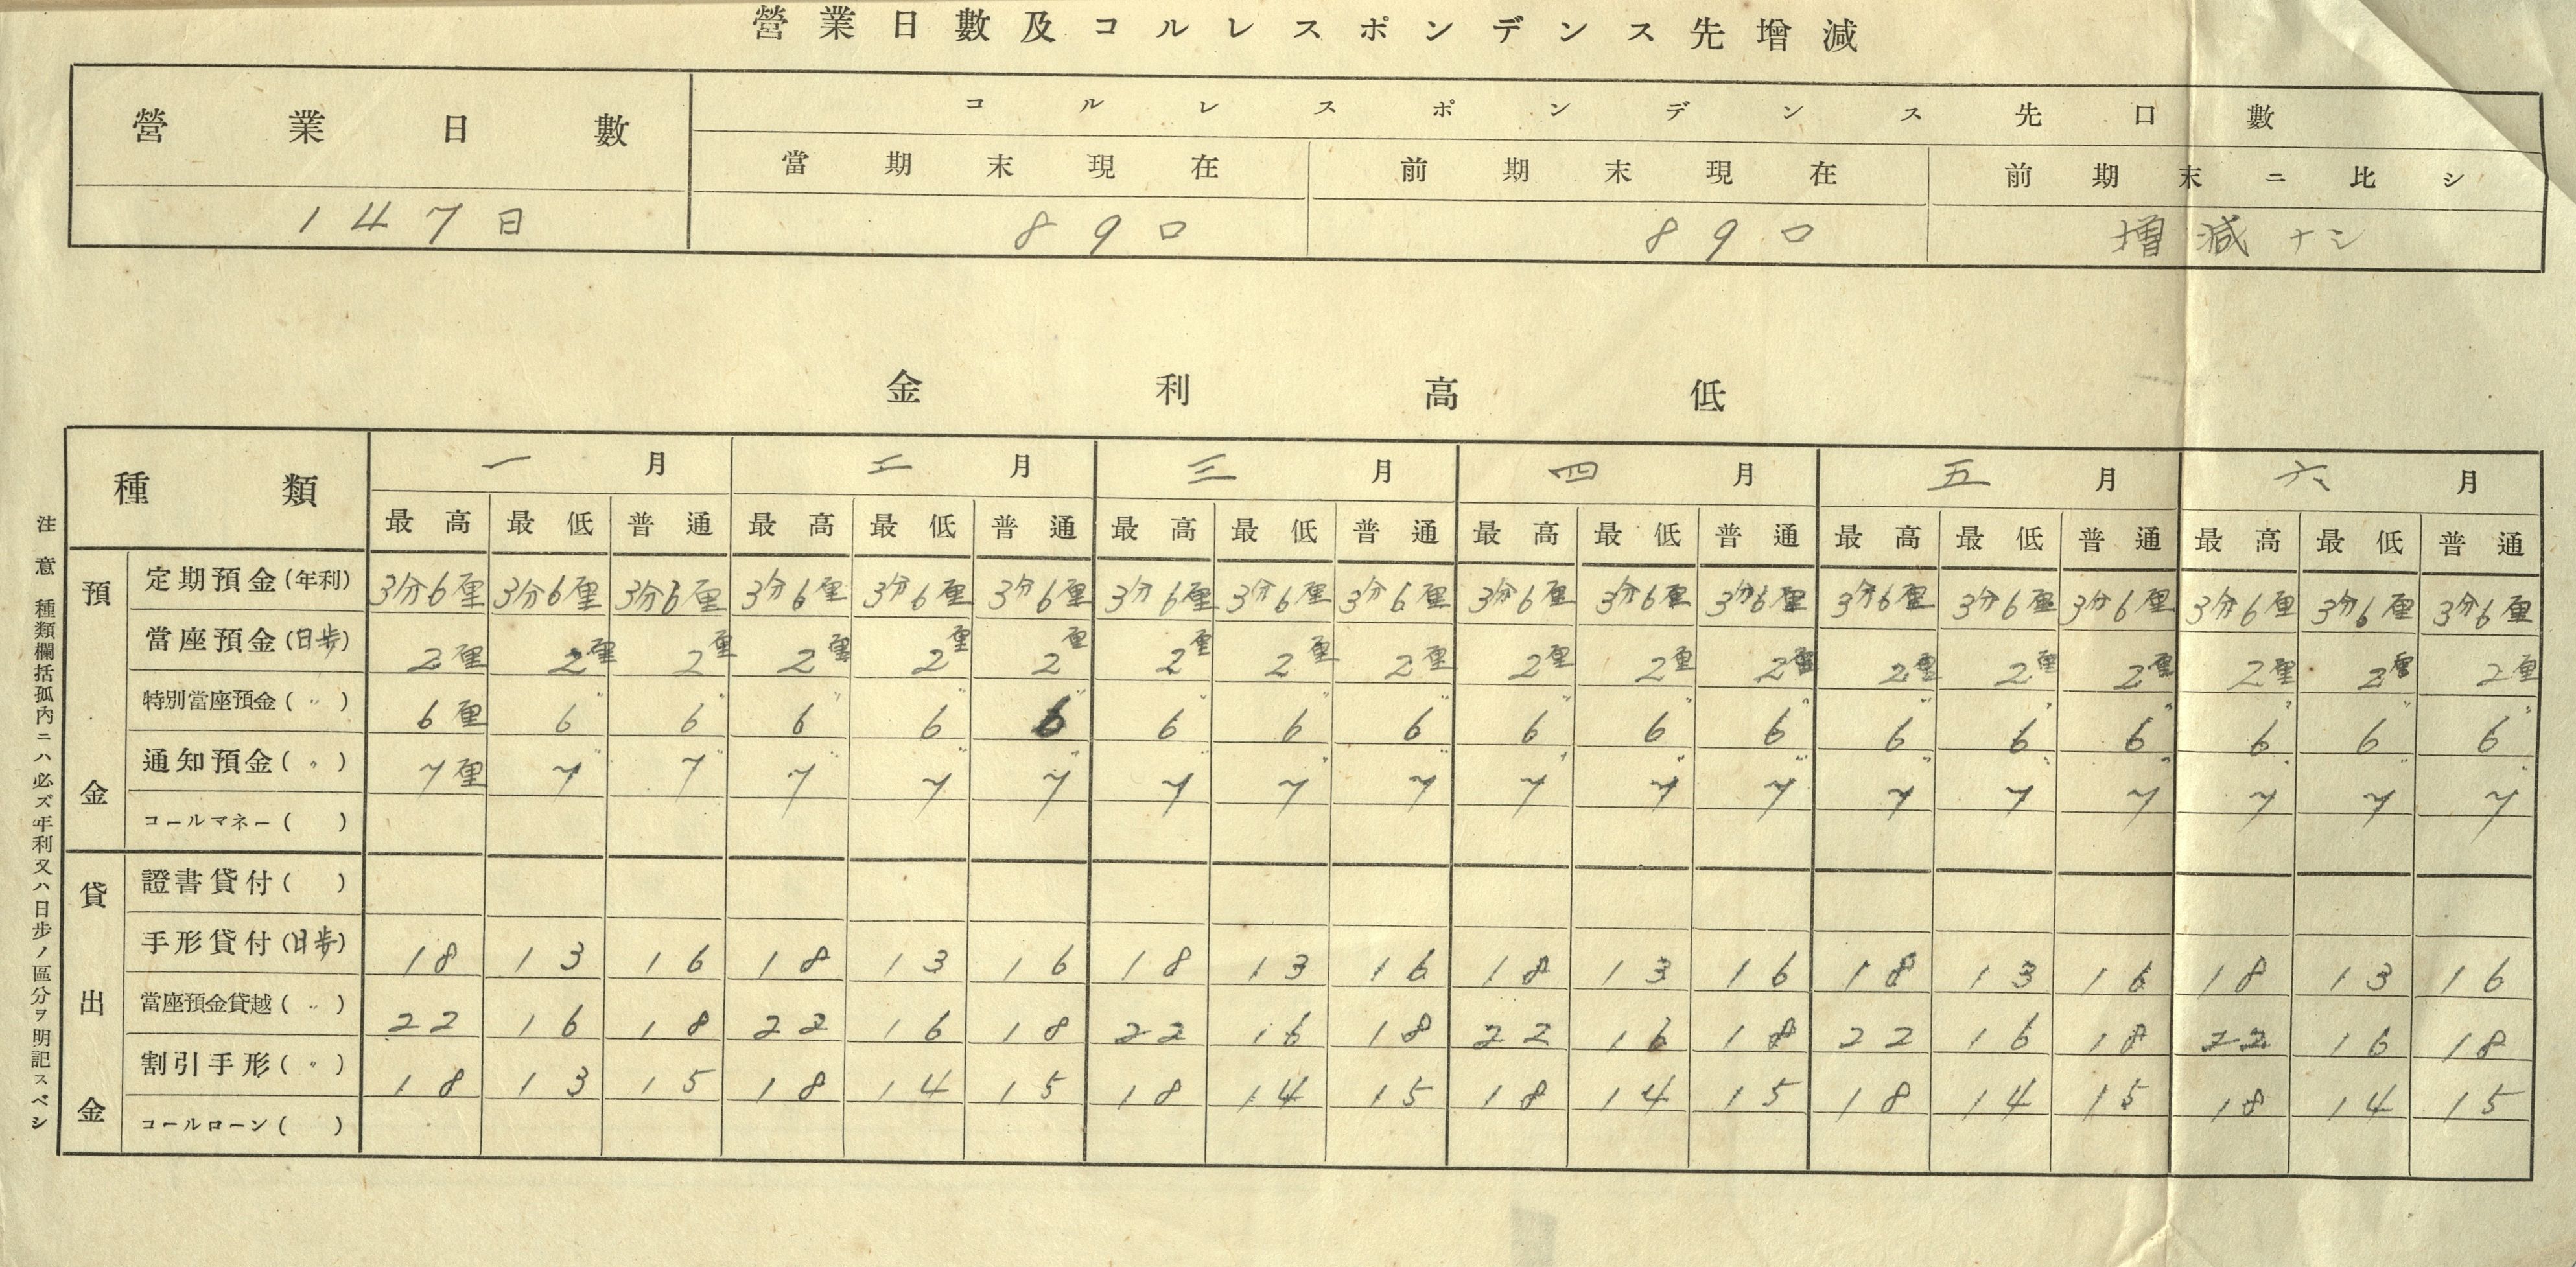 營業日數及コルレスポンデンス先增減
營業日數 コルレスポンデンス先口數
當期末現在 前期末現在 前期末ニ比シ
147日 89口 89口 増減ナシ
金利高低
種類 一月 二月 三月 四月 五月 六月
最高 最低 普通 最高 最低 普通 最高 最低 普通 最高 最低 普通 最高 最低 普通 最高 最低 普通
預金
定期預金(年利) 3分6厘 3分6厘 3分6厘 3分6厘 3分6厘 3分6厘 3分6厘 3分6厘 3分6厘 3分6厘 3分6厘 3分6厘 3分6厘 3分6厘 3分6厘 3分6厘 3分6厘 3分6厘
當座預金(日歩) 2厘 2厘 2厘 2厘 2厘 2厘 2厘 2厘 2厘 2厘 2厘 2厘 2厘 2厘 2厘 2厘 2厘 2厘
特別當座預金(〃) 6厘 6〃 6〃 6〃 6〃 6〃 6〃 6〃 6〃 6〃 6〃 6〃 6〃 6〃 6〃 6〃 6〃 6〃
通知預金(〃) 7厘 7〃 7〃 7〃 7〃 7〃 7〃 7〃 7〃 7〃 7〃 7〃 7〃 7〃 7〃 7〃 7〃 7〃
コールマネー( )
貸出金
證書貸付( )
手形貸付(日歩) 18 13 16 18 13 16 18 13 16 18 13 16 18 13 16 18 13 16
當座預金貸越(〃) 22 16 18 22 16 18 22 16 18 22 16 18 22 16 18 22 16 18
割引手形(〃) 18 13 15 18 14 15 18 14 15 18 14 15 18 14 15 18 14 15
コールローン( )
注意 種類欄括孤内ニハ必ズ年利又ハ日步ノ區分ヲ明記スベシ